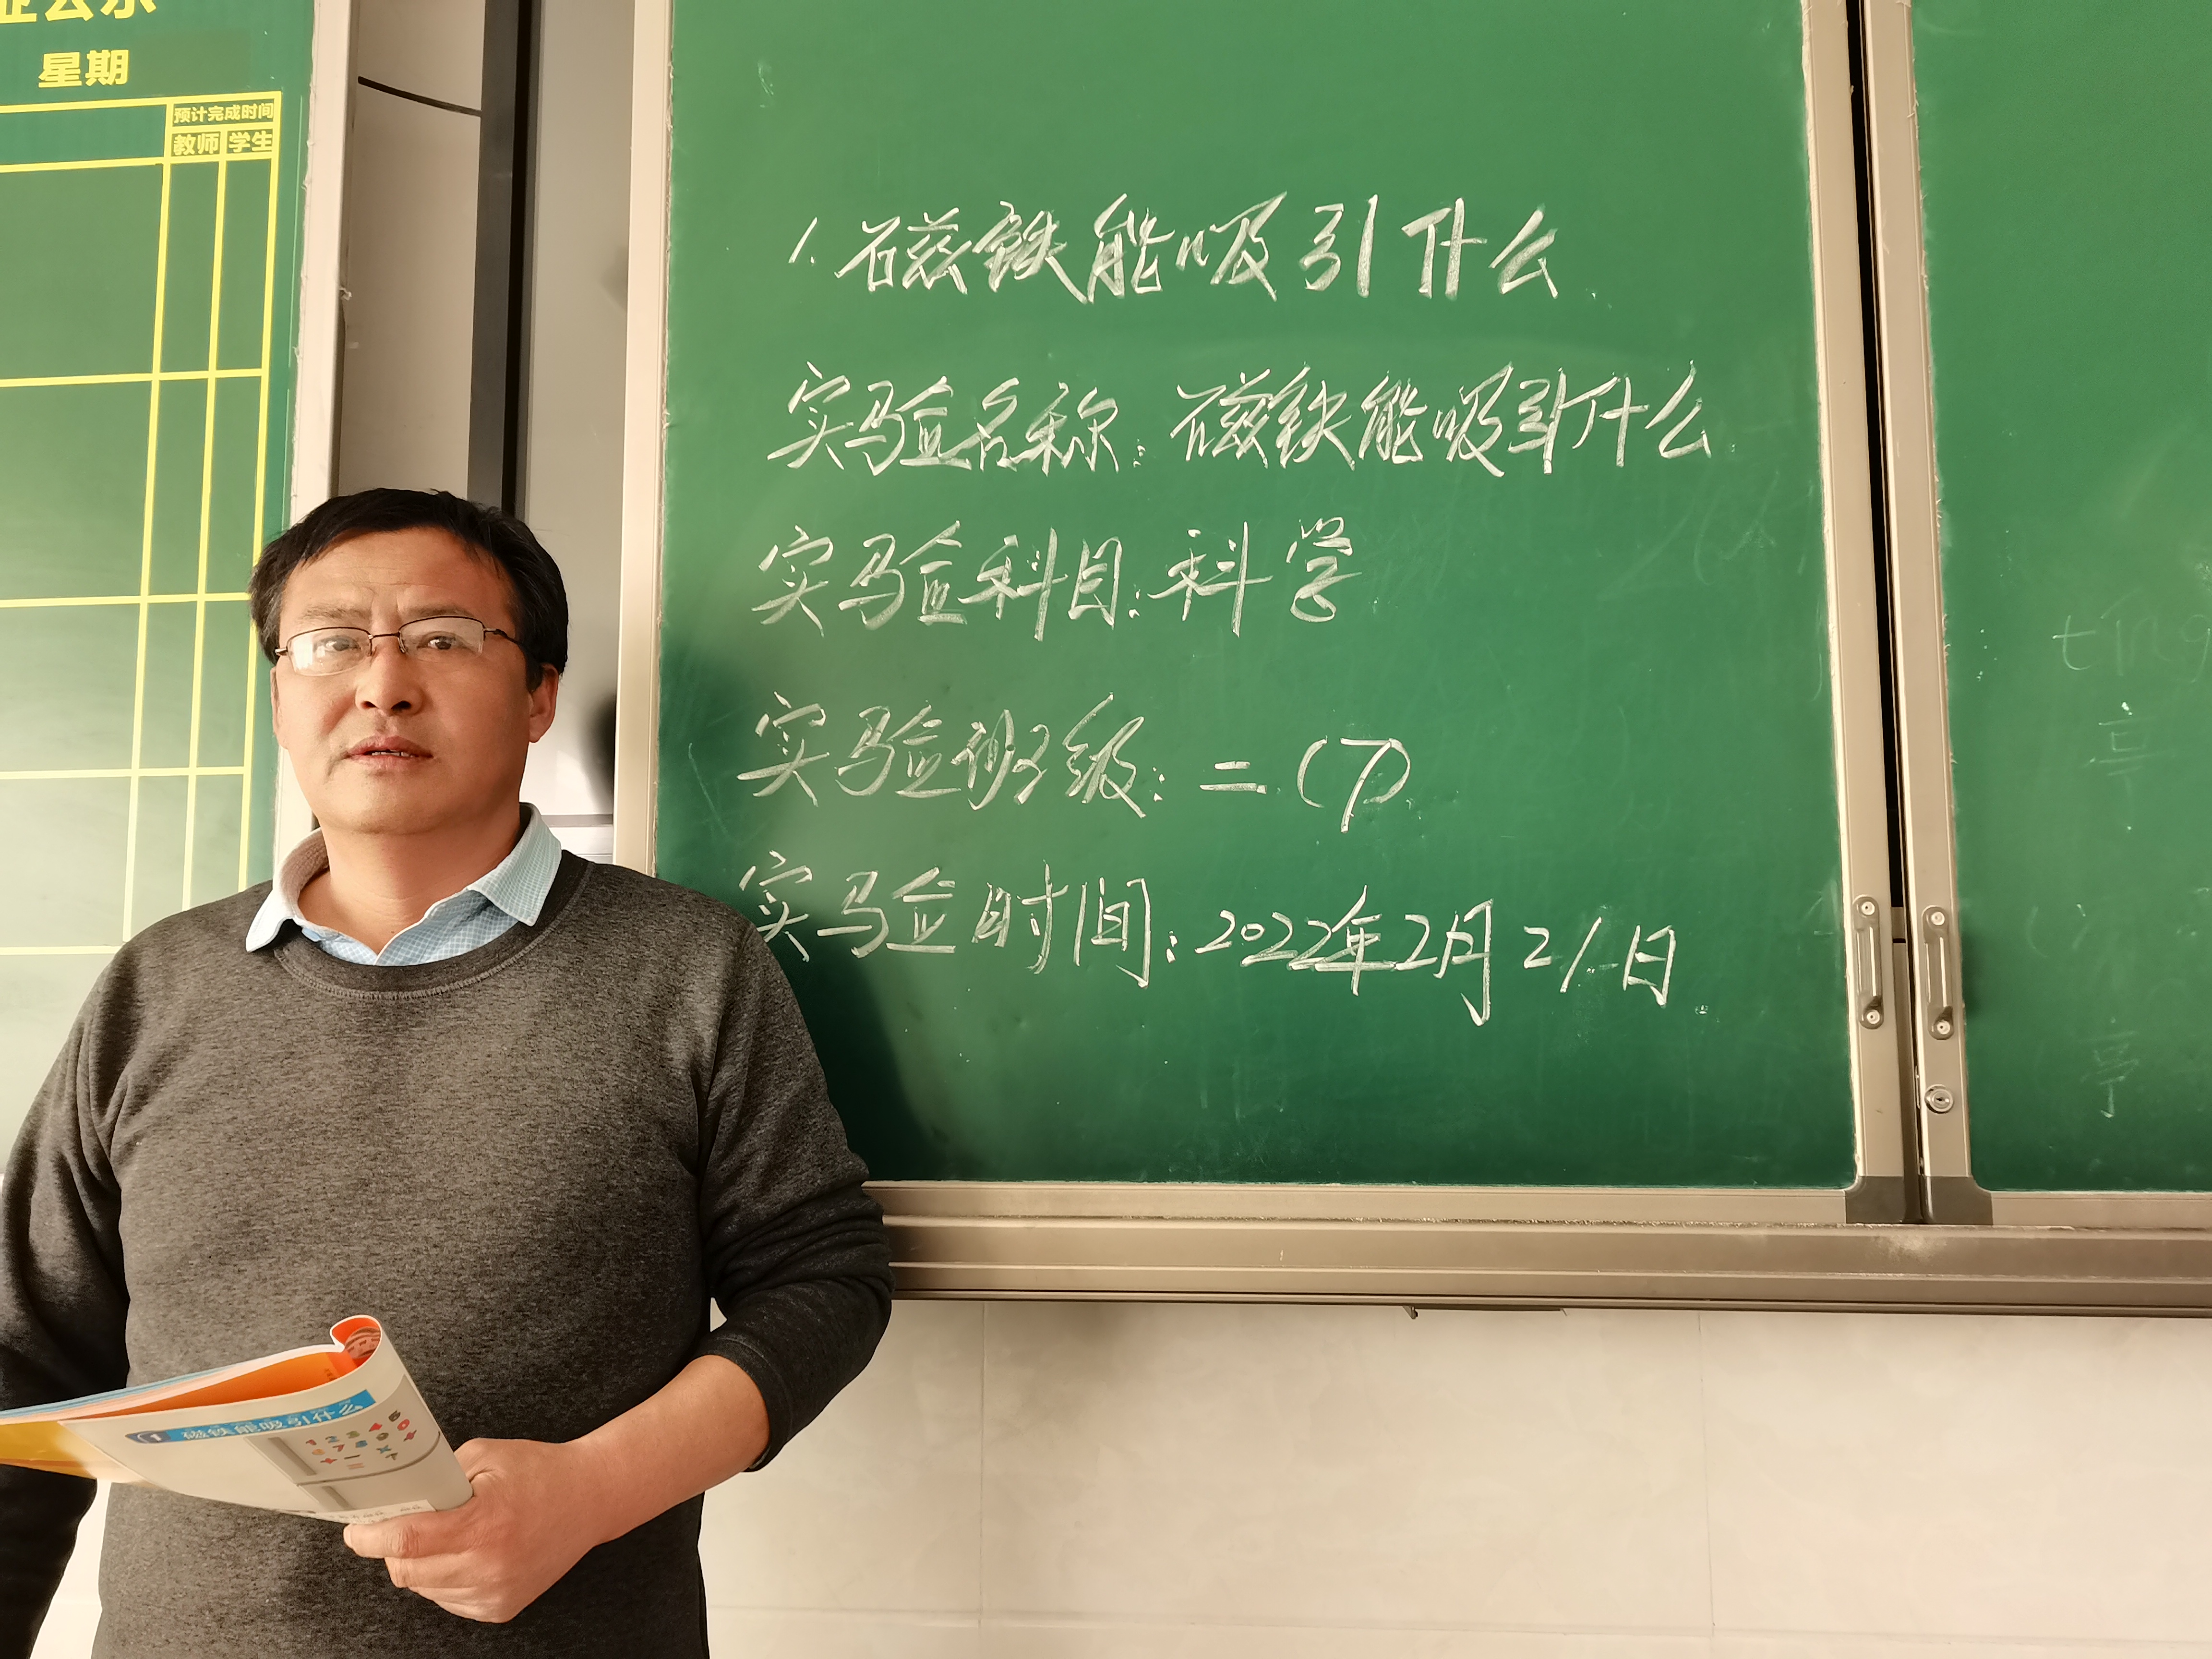 星期
预计完成时间
教师 学生
1. 磁铁能吸引什么
实验名称：磁铁能吸引什么
实验科目：科学
实验班级：二（7）
实验时间：2022年2月21日
1 磁铁能吸引什么